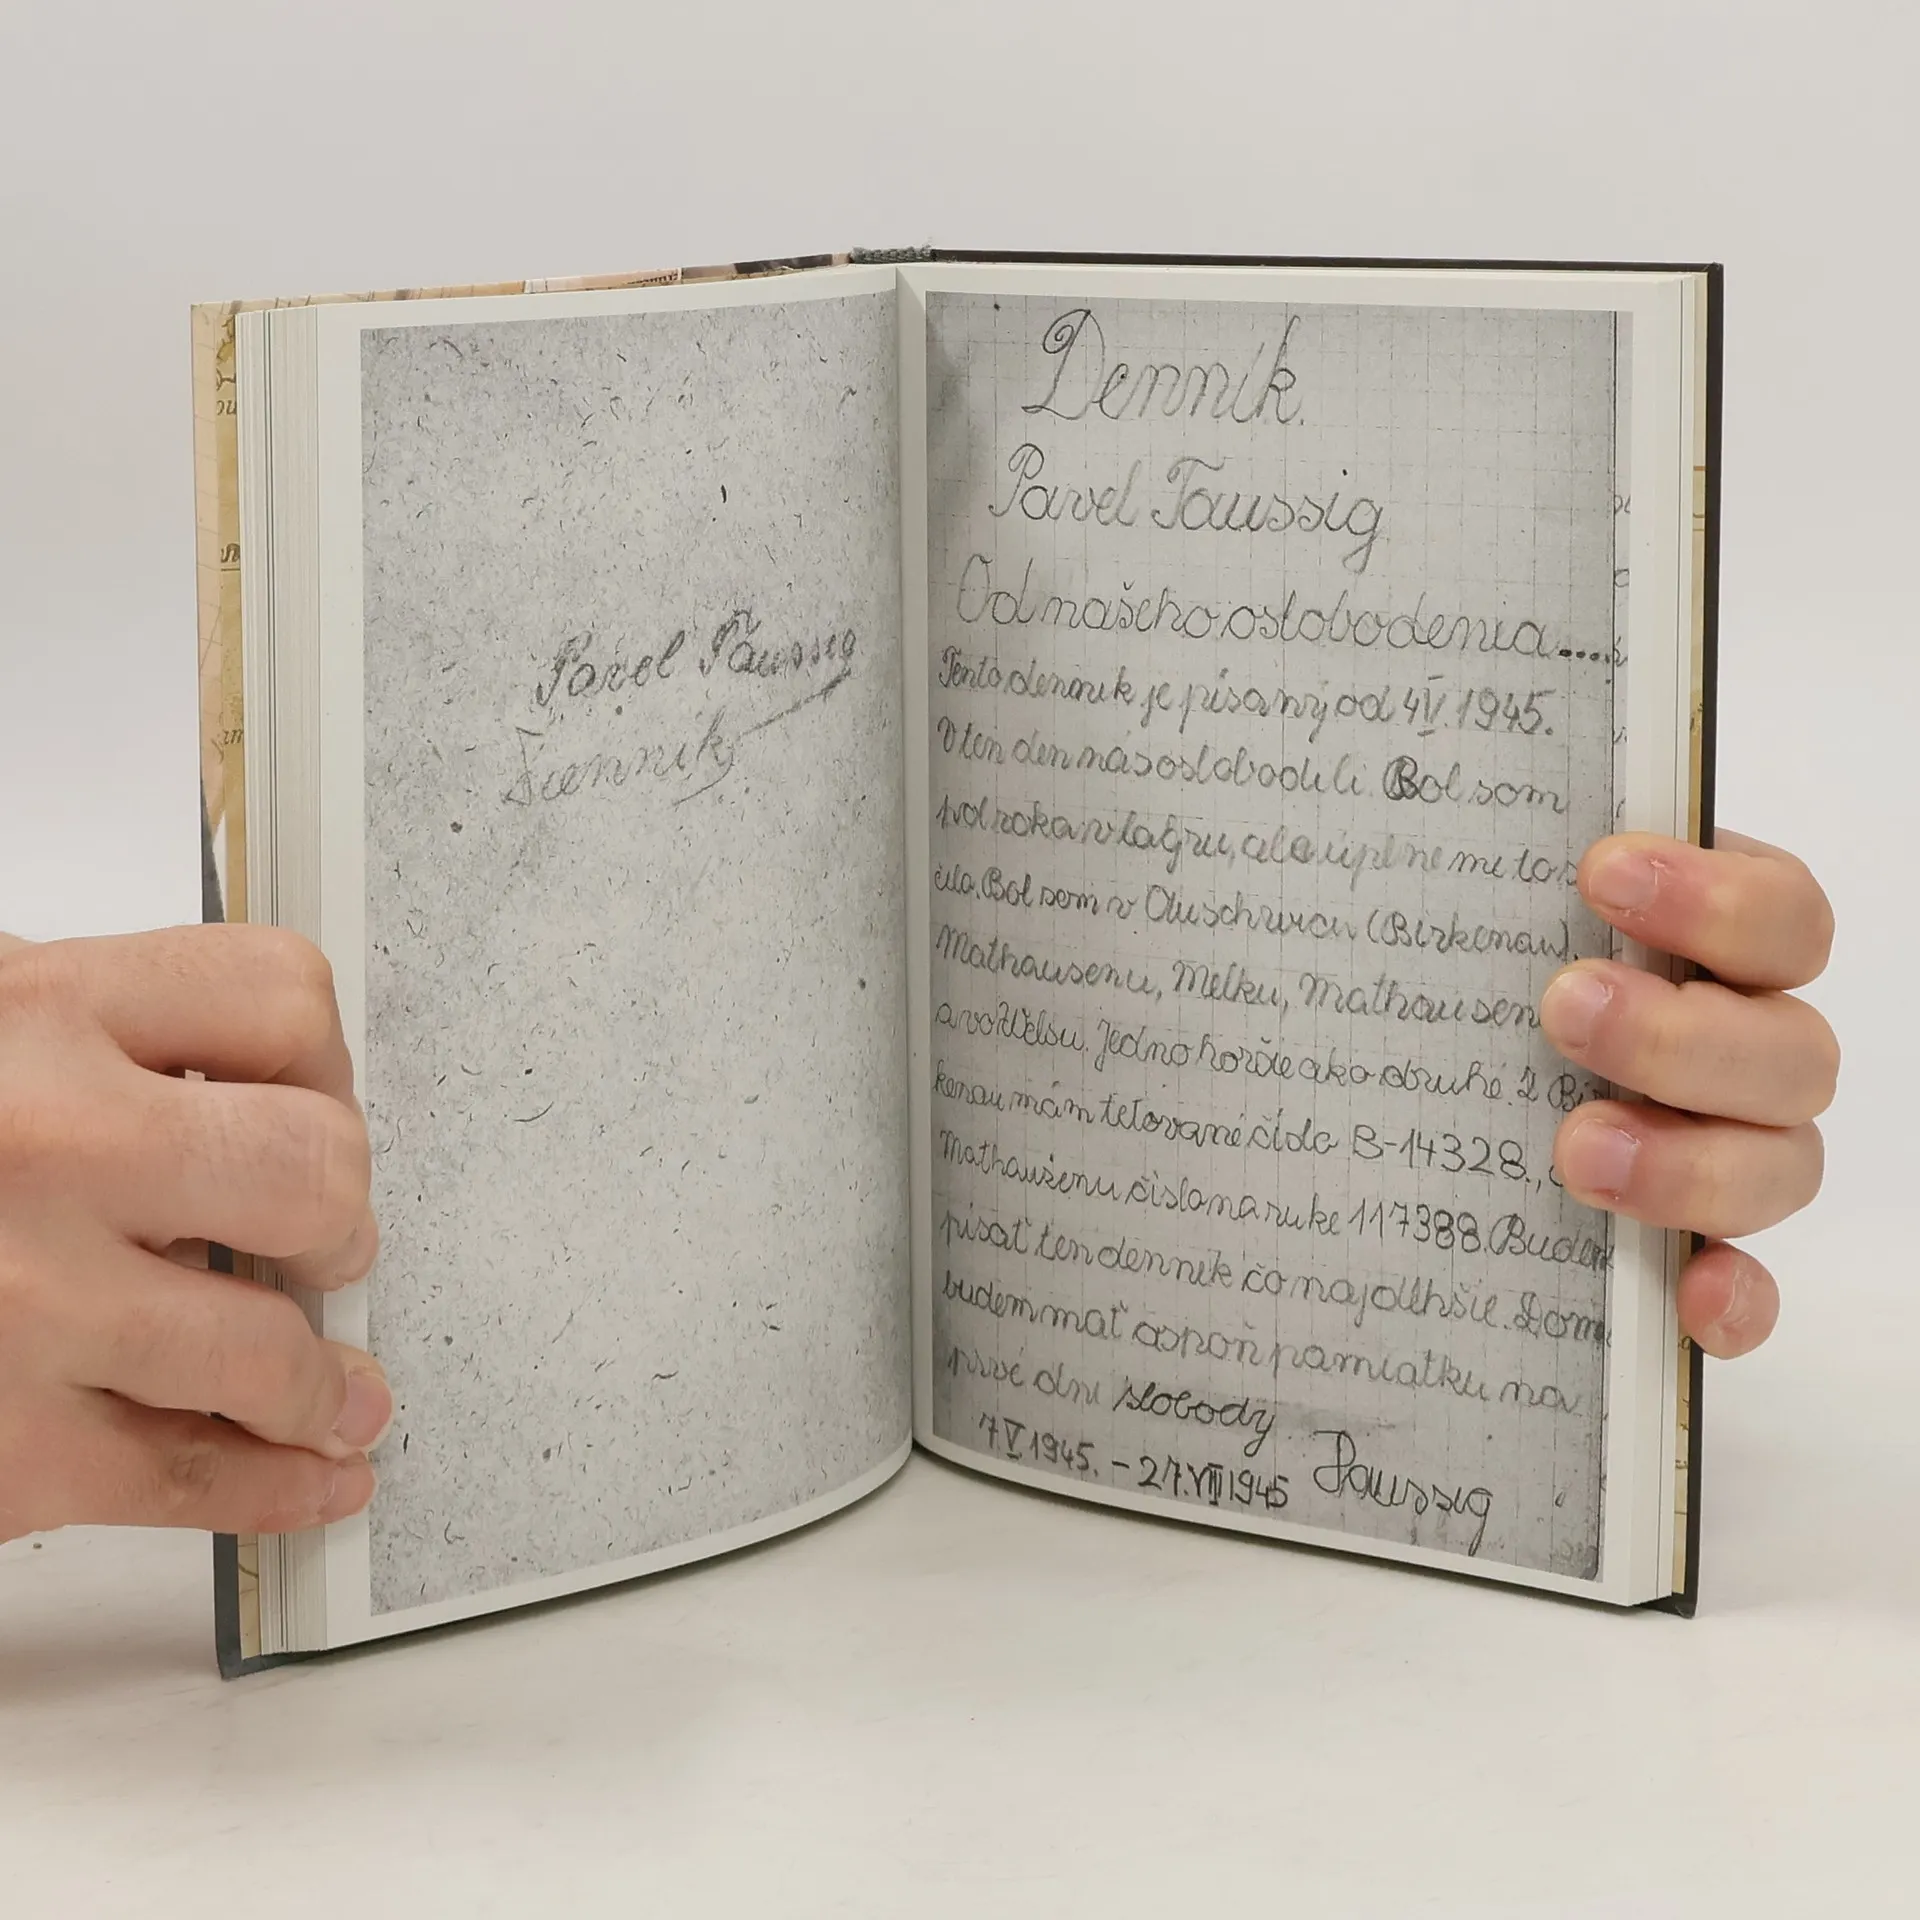 Pavel Taussig
Dennik
Denník.
Pavel Taussig
Od našeho oslobodenia....
Tento dennik je písaný od 4V. 1945.
V ten den nás oslobodili. Bol som
pol roka v lagru, ale úplne mi to s
čilo. Bol som v Auschwicu (Birkenau).
Mathausenu, Melku, Mathausen
a vo Welsu. Jedno horšie ako druhé. Z Bir
kenau mám tetované číslo B-14328.,
Mathausenu číslo na ruke 117388. Budem
písať ten dennik čo najdlhšie. Doma
budem mať aspoň pamiatku na
prvé dni slobody
7 V 1945. - 27.VIII 1945 Taussig